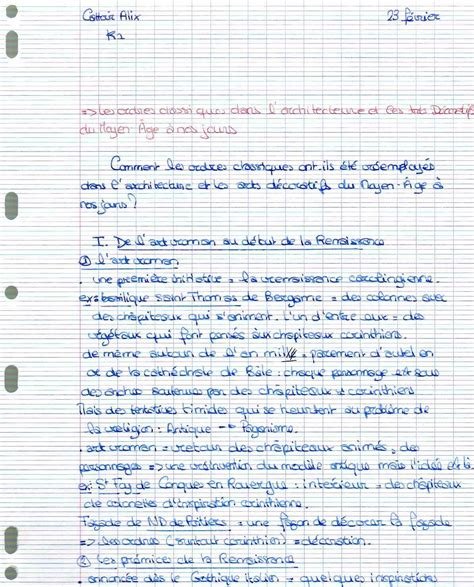 Cottair Alix
23 février
K1
=> Les ordres classiques dans l'architecture et les arts Décoratifs
du Moyen-Âge à nos jours
Comment les ordres classiques ont-ils été réemployés
dans l'architecture et les arts décoratifs du Moyen-Âge à
nos jours ?
I. De l'art roman au début de la Renaissance
① l'art roman
. une première initiative = la renaissance carolingienne.
ex: basilique saint Thomas de Bergame = des colonnes avec
des chapiteaux qui s'animent. L'un d'entre eux = des
végétaux qui font pensés aux chapiteaux corinthiens.
de même autour de l'an mil = parement d'autel en
or de la cathédrale de Bâle : chaque personnage est sous
des arches soutenues par des chapiteaux corinthiens
Mais des tentatives timides qui se heurtent au problème de
la religion : Antique -> Paganisme.
. art roman = retour des chapiteaux animés, des
personnages => une réinvention du modèle antique mais l'idée est là
ex: St Foy de Conques en Rouergue : intérieur = des chapiteaux
de colonnettes d'inspiration corinthienne.
Façade de ND de Poitiers = une façon de décorer la façade
=> les ordres (surtout corinthien) = décoration.
② Les prémices de la Renaissance
. annoncée dès le Gothique italien = quelques inspirations